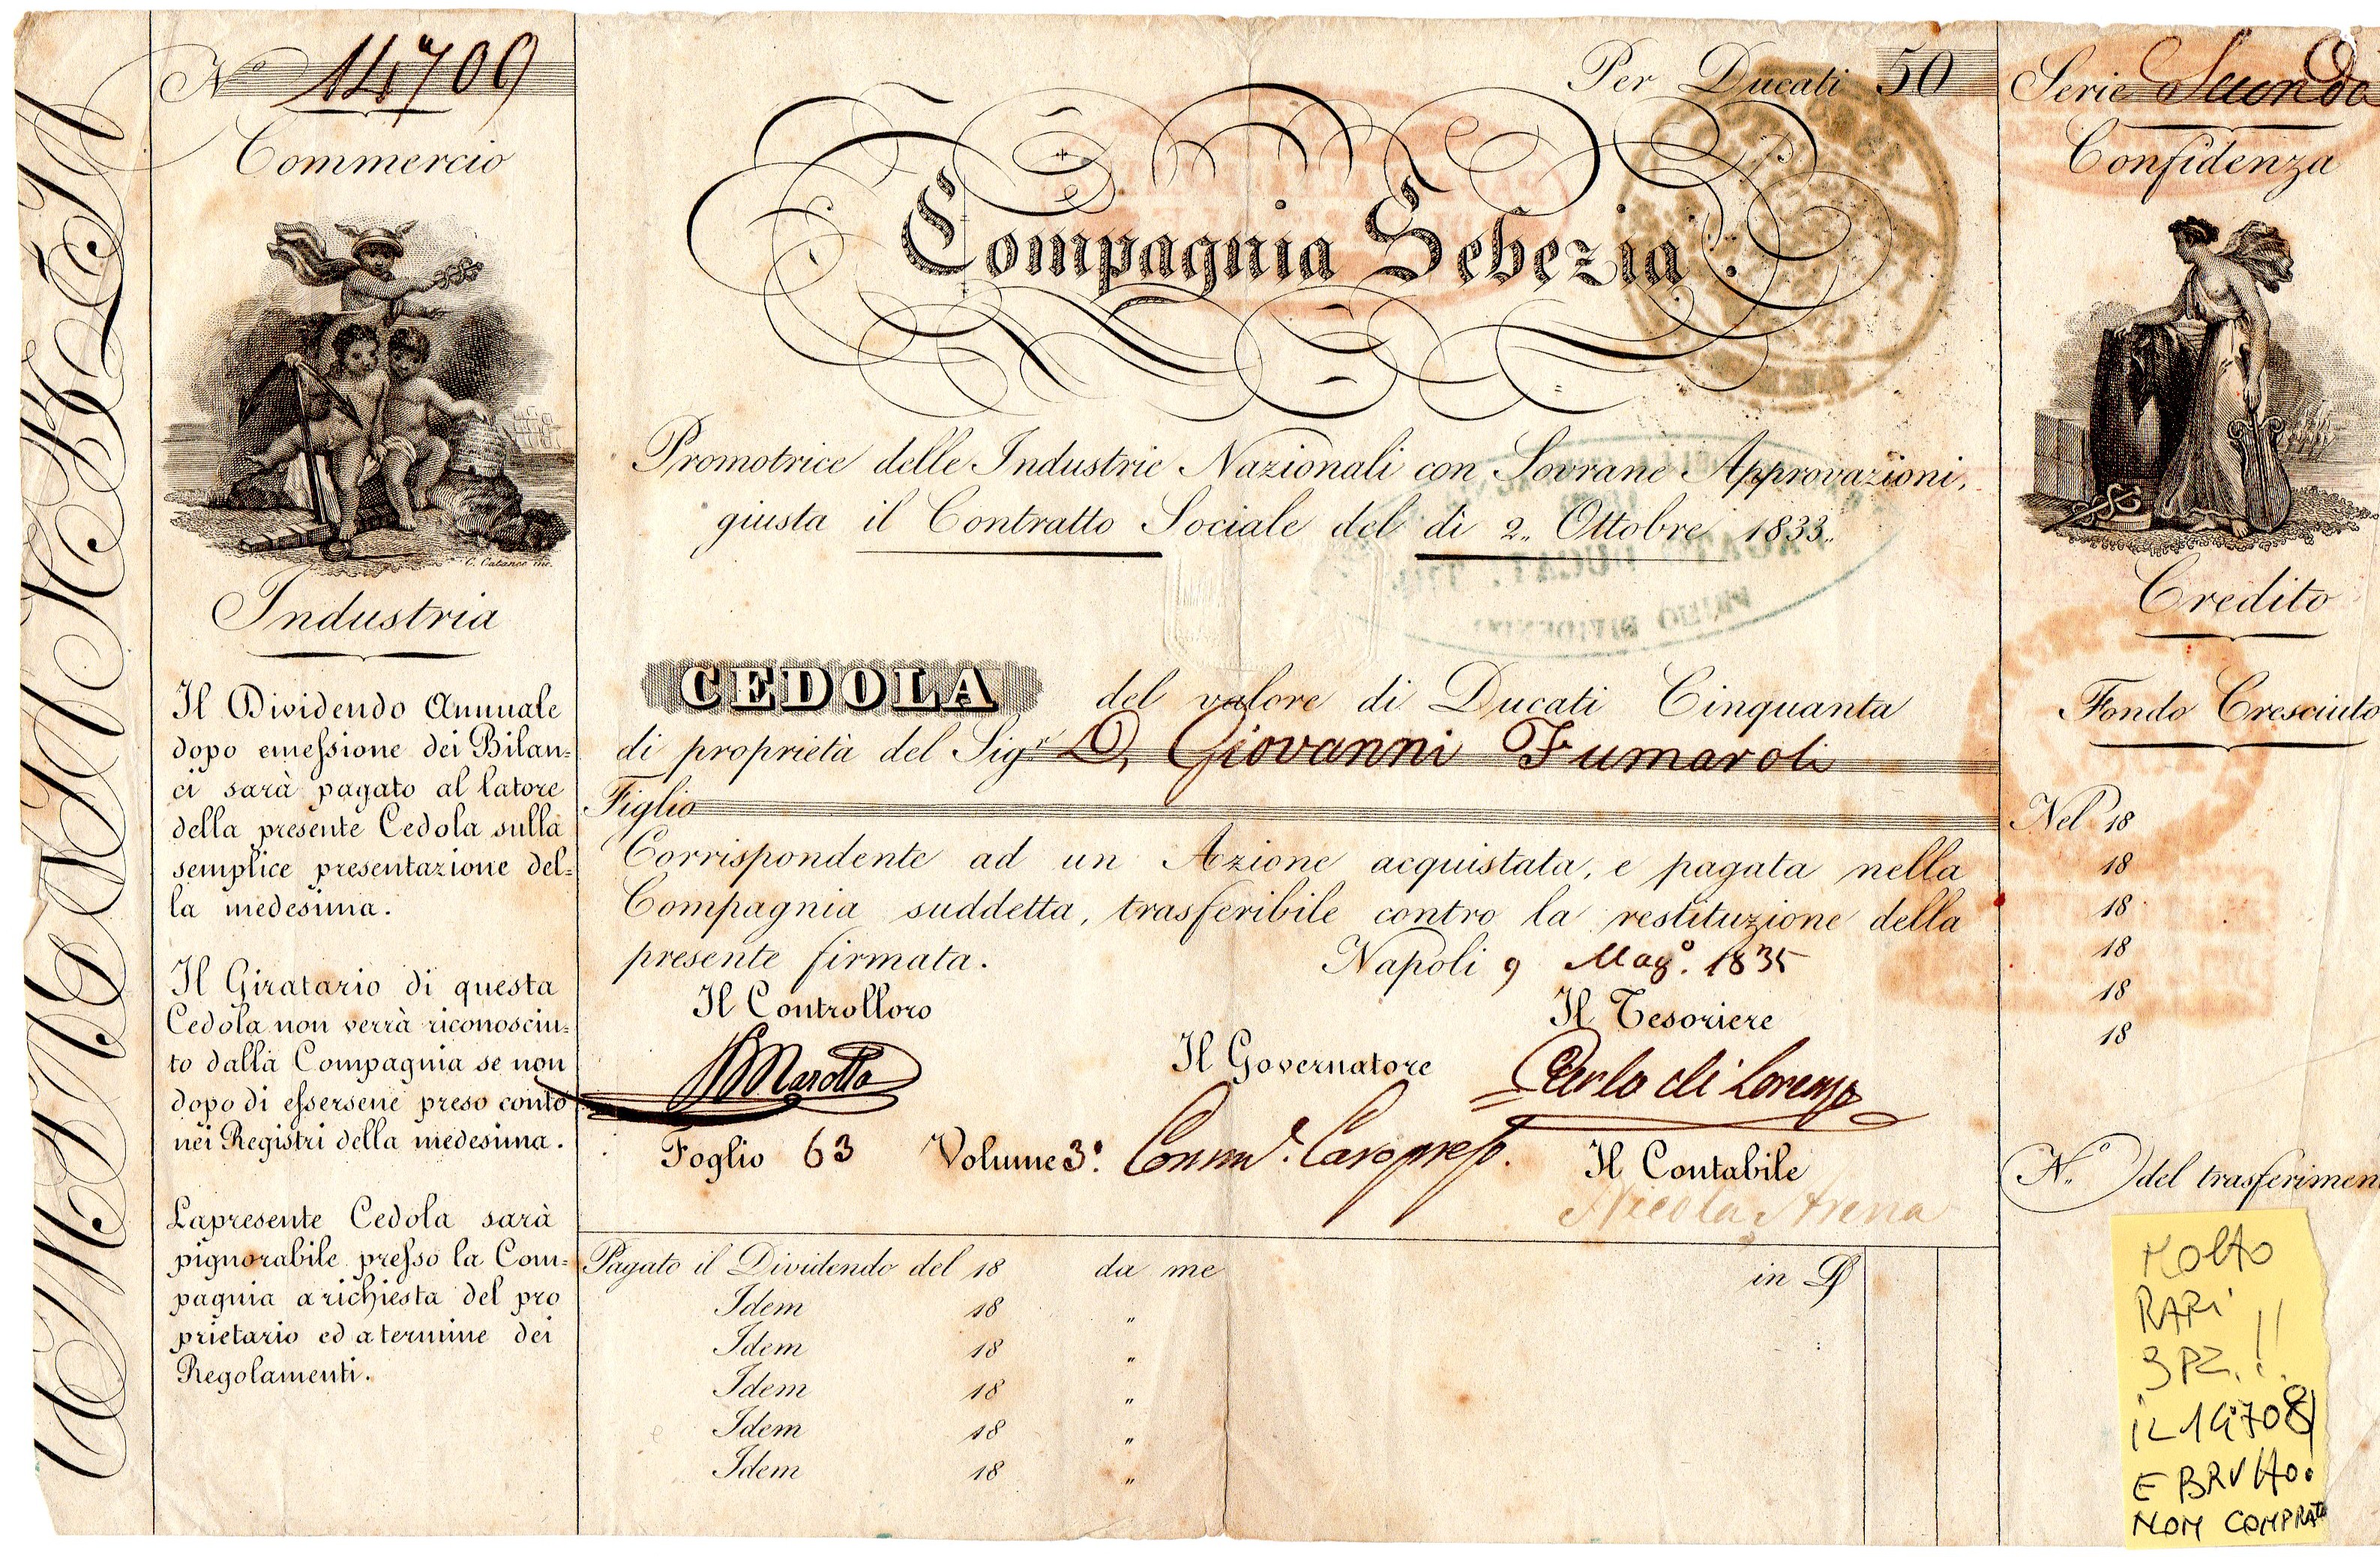 N.º 14709
Commercio
C. Cataneo inc.
Industria
Il Dividendo Annuale
dopo emessione dei Bilan=
ci sarà pagato al latore
della presente Cedola sulla
semplice presentazione del=
la medesima.
Il Giratario di questa
Cedola non verrà riconosciu=
to dalla Compagnia se non
dopo di essersene preso conto
nei Registri della medesima.
Lapresente Cedola sarà
pignorabile presso la Com=
pagnia a richiesta del pro
prietario ed a termine dei
Regolamenti.
Per Ducati 50
Compagnia Sebezia
Promotrice delle Industrie Nazionali con Sovrane Approvazioni,
giusta il Contratto Sociale del dì 2.. Ottobre 1833..
PRIMO DIVIDENDO
CEDOLA del valore di Ducati Cinquanta
di proprietà del Sigr. D. Giovanni Fumaroli
Figlio
Corrispondente ad un Azione acquistata, e pagata nella
Compagnia suddetta, trasferibile contro la restituzione della
presente firmata.
Napoli 9 Mago. 1835
Il Controlloro
Il Tesoriere
Marotta
Il Governatore
Carlo di Lorenzo
Foglio 63 Volume 3º.
Il Contabile
Nicola Arena
Pagato il Dividendo del 18 da me in D
Idem 18 "
Idem 18 "
Idem 18 "
Idem 18 "
Idem 18 "
Serie Seconda
Confidenza
Credito
Fondo Cresciuto
Nel 18
18
18
18
18
18
N.º del trasferimen
MOLTO
RARI
3 PZ.!!
IL 14708
E BRUTTO.
NON COMPRATO